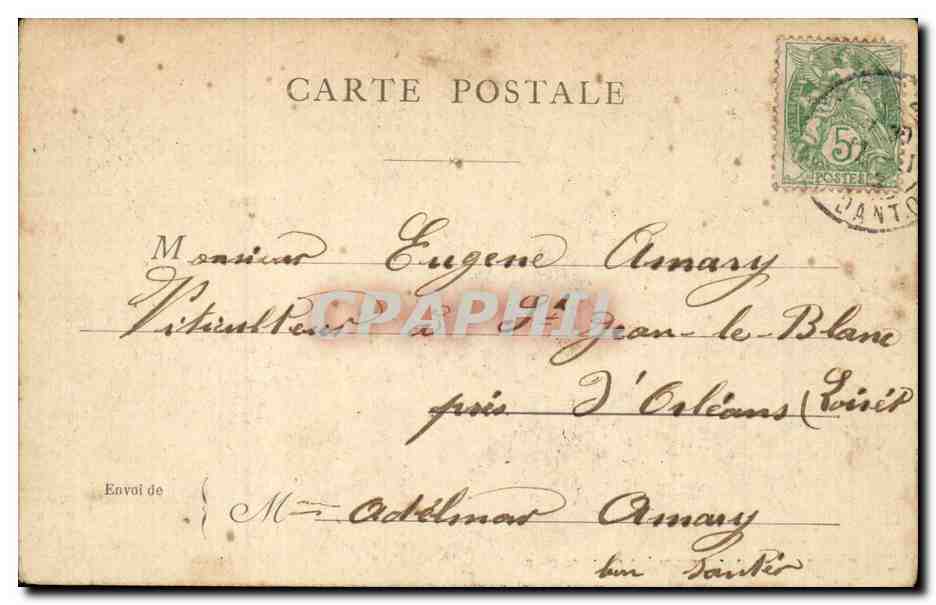 CARTE POSTALE
5c
POSTES
DANTO
Monsieur Eugene Amary
Viticulteur à St Jean-le-Blanc
CPAPHIL
près d'Orléans (Loiret
Envoi de
Mme Adélmar Amary
bon Santér